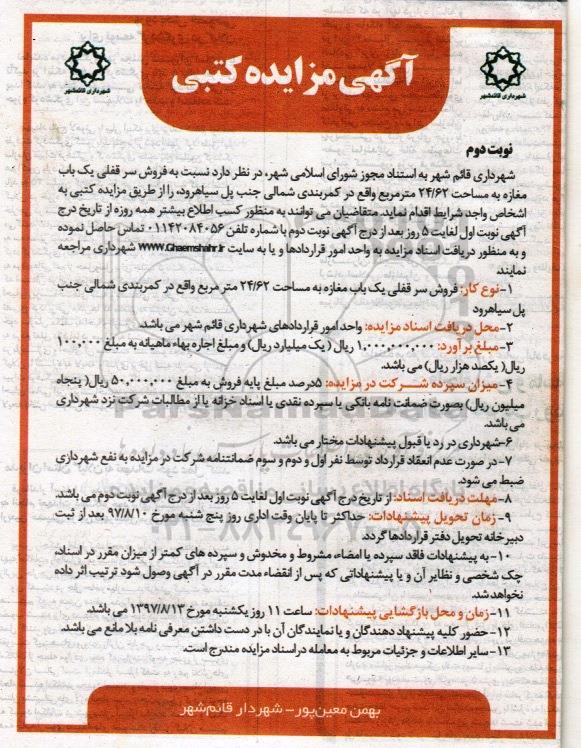 آگهی مزایده کتبی
شهرداری قائمشهر
شهرداری قائمشهر
نوبت دوم
شهرداری قائم شهر به استناد مجوز شورای اسلامی شهر، در نظر دارد نسبت به فروش سر قفلی یک باب
مغازه به مساحت ۲۴/۶۲ مترمربع واقع در کمربندی شمالی جنب پل سیاهرود، را از طریق مزایده کتبی به
اشخاص واجد شرایط اقدام نماید. متقاضیان می توانند به منظور کسب اطلاع بیشتر همه روزه از تاریخ درج
آگهی نوبت اول لغایت ۵ روز بعد از درج آگهی نوبت دوم با شماره تلفن ۰۱۱۴۲۰۸۴۰۵۶ تماس حاصل نموده
و به منظور دریافت اسناد مزایده به واحد امور قراردادها و یا به سایت www.Ghaemshahr.ir شهرداری مراجعه
نمایند.
۱-نوع کار: فروش سر قفلی یک باب مغازه به مساحت ۲۴/۶۲ متر مربع واقع در کمربندی شمالی جنب
پل سیاهرود
۲-محل دریافت اسناد مزایده: واحد امور قراردادهای شهرداری قائم شهر می باشد.
۳-مبلغ برآورد: ۱,۰۰۰,۰۰۰,۰۰۰ ریال ( یک میلیارد ریال) و مبلغ اجاره بهاء ماهیانه به مبلغ ۱۰۰,۰۰۰
ریال( یکصد هزار ریال) می باشد.
۴- میزان سپرده شرکت در مزایده: ۵درصد مبلغ پایه فروش به مبلغ ۵۰,۰۰۰,۰۰۰ ریال( پنجاه
میلیون ریال) بصورت ضمانت نامه بانکی یا سپرده نقدی یا اسناد خزانه یا از مطالبات شرکت نزد شهرداری
می باشد.
۶-شهرداری در رد یا قبول پیشنهادات مختار می باشد.
۷-در صورت عدم انعقاد قرارداد توسط نفر اول و دوم و سوم ضمانتنامه شرکت در مزایده به نفع شهرداری
ضبط می شود.
۸-مهلت دریافت اسناد: از تاریخ درج آگهی نوبت اول لغایت ۵ روز بعد از درج آگهی نوبت دوم می باشد.
۹- زمان تحویل پیشنهادات: حداکثر تا پایان وقت اداری روز پنج شنبه مورخ ۹۷/۸/۱۰ بعد از ثبت
دبیرخانه تحویل دفتر قراردادها گردد.
۱۰- به پیشنهادات فاقد سپرده یا امضاء، مشروط و مخدوش و سپرده های کمتر از میزان مقرر در اسناد،
چک شخصی و نظایر آن و یا پیشنهاداتی که پس از انقضاء مدت مقرر در آگهی وصول شود ترتیب اثر داده
نخواهد شد.
۱۱- زمان و محل بازگشایی پیشنهادات: ساعت ۱۱ روز یکشنبه مورخ ۱۳۹۷/۸/۱۳ می باشد.
۱۲- حضور کلیه پیشنهاد دهندگان و یا نمایندگان آن با در دست داشتن معرفی نامه بلا مانع می باشد.
۱۳- سایر اطلاعات و جزئیات مربوط به معامله در اسناد مزایده مندرج است.
بهمن معین‌پور - شهردار قائم‌شهر